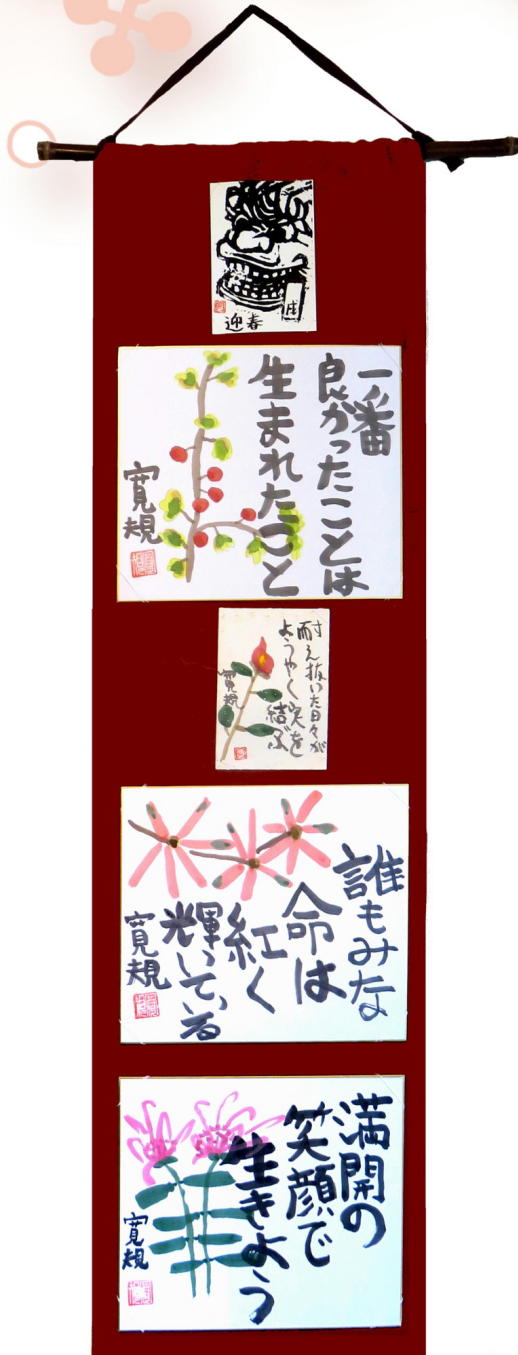 迎春
一番
良かったことは
生まれたこと
寛規
耐え抜いた日々が
ようやく実を
結ぶ
寛規
誰もみな
命は
紅く
輝いている
寛規
満開の
笑顔で
生きよう
寛規